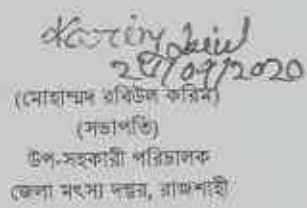 (মোহাম্মদ রবিউল করিম)
(সভাপতি)
উপ-সহকারী পরিচালক
জেলা মৎস্য দপ্তর, রাজশাহী